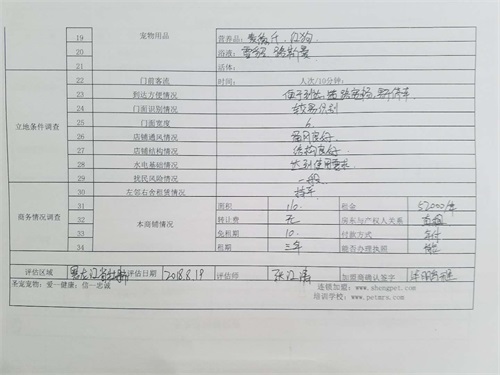 19 宠物用品 营养品: 红狗
20 浴液: 雪貂
21 活体:
立地条件调查
22 门前客流 时间: 人次/10分钟:
23 到达方便情况
24 门面识别情况 较易识别
25 门面宽度 6
26 店铺通风情况 通风良好
27 店铺结构情况 结构良好
28 水电基础情况 达到使用要求
29 扰民风险情况 一般
30 左邻右舍租赁情况
商务情况调查 本商铺情况
31 面积 110 租金 52000/年
32 转让费 无 房东与产权人关系
33 免租期 10 付款方式 年付
34 租期 三年 能否办理执照 能
评估区域 黑龙江省 评估日期 2018.8.19 评估师 加盟商确认签字
圣宠宠物:爱—健康;信—忠诚 连锁加盟:www.shengpet.com
培训学校:www.petmrs.com